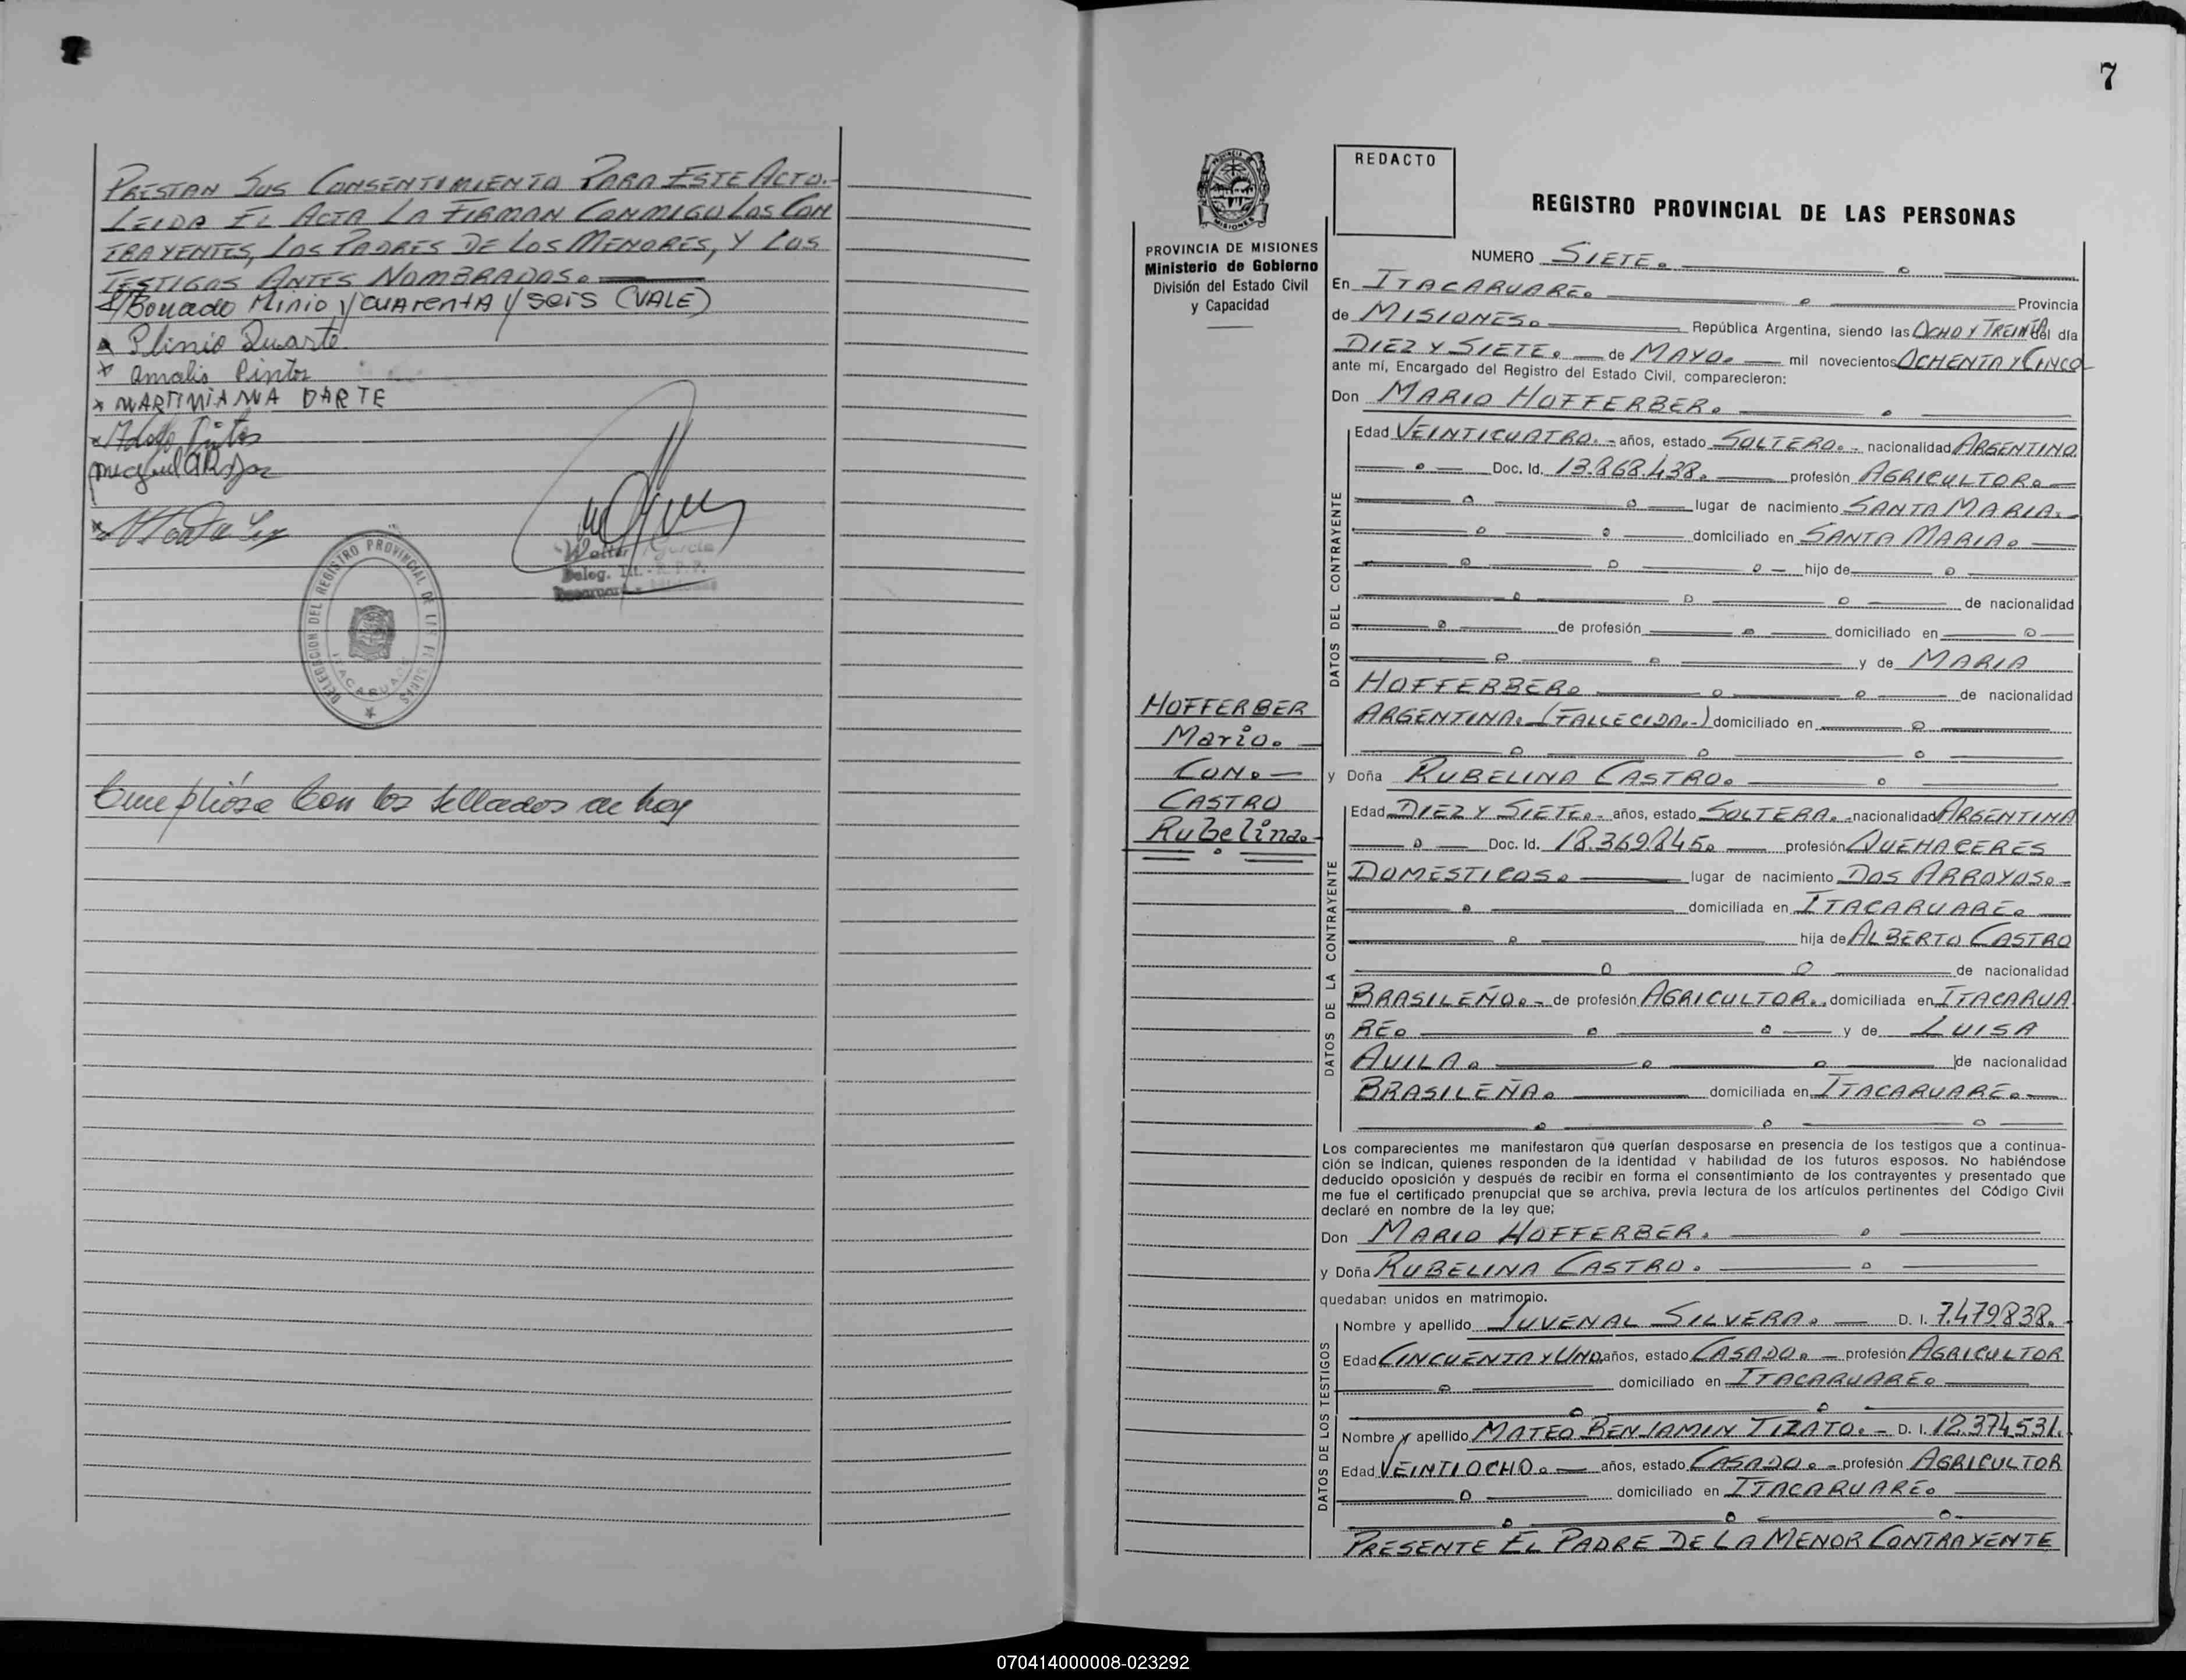 PRESTAN SUS CONSENTIMIENTO PARA ESTE ACTO.-
LEIDA EL ACTA LA FIRMAN CONMIGO LOS CON
TRAYENTES, LOS PADRES DE LOS MENORES, Y LOS
TESTIGOS ANTES NOMBRADOS.
S/Bonado Minio y cuArentA y seis (VALE)
x Plinio Duarte
x Amalio Pintos
x MARTINIANA DARTE
Walter García
Deleg. Tit. R. P. P.
DELEGACION DEL REGISTRO PROVINCIAL DE LAS PERSONAS
ITACARUARE
Cumplióse con los sellados de hoy
7
PROVINCIA DE MISIONES
Ministerio de Gobierno
División del Estado Civil
y Capacidad
HOFFERBER
Mario.
CON.-
CASTRO
Rubelina.
REDACTO
REGISTRO PROVINCIAL DE LAS PERSONAS
NUMERO SIETE.
En ITACARUARE. Provincia
de MISIONES. República Argentina, siendo las OCHO Y TREINTA del día
DIEZ Y SIETE. de MAYO. mil novecientos OCHENTA Y CINCO
ante mí, Encargado del Registro del Estado Civil, comparecieron:
Don MARIO HOFFERBER.
DATOS DEL CONTRAYENTE
Edad VEINTICUATRO.- años, estado SOLTERO.- nacionalidad ARGENTINO
Doc. Id. 13.868.438. profesión AGRICULTOR.
lugar de nacimiento SANTA MARIA.-
domiciliado en SANTA MARIA.
hijo de
de nacionalidad
de profesión domiciliado en
y de MARIA
HOFFERBER. de nacionalidad
ARGENTINA. (FALLECIDA.-) domiciliado en
y Doña RUBELINA CASTRO.
DATOS DE LA CONTRAYENTE
Edad DIEZ Y SIETE.- años, estado SOLTERA.- nacionalidad ARGENTINA
Doc. Id. 18.369.845. profesión QUEHACERES
DOMESTICOS. lugar de nacimiento DOS ARROYOS.-
domiciliada en ITACARUARE.
hija de ALBERTO CASTRO
de nacionalidad
BRASILEÑO.- de profesión AGRICULTOR. domiciliada en ITACARUA
RE. y de LUISA
AVILA. de nacionalidad
BRASILEÑA. domiciliada en ITACARUARE.
Los comparecientes me manifestaron que querían desposarse en presencia de los testigos que a continua-
ción se indican, quienes responden de la identidad y habilidad de los futuros esposos. No habiéndose
deducido oposición y después de recibir en forma el consentimiento de los contrayentes y presentado que
me fue el certificado prenupcial que se archiva, previa lectura de los artículos pertinentes del Código Civil
declaré en nombre de la ley que;
Don MARIO HOFFERBER.
y Doña RUBELINA CASTRO.
quedaban unidos en matrimonio.
DATOS DE LOS TESTIGOS
Nombre y apellido JUVENAL SILVERA. D. I. 7.479.838.
Edad CINCUENTA Y UNO años, estado CASADO. profesión AGRICULTOR
domiciliado en ITACARUARE.
Nombre y apellido MATEO BENJAMIN TIZATO.- D. I. 12.374.531.
Edad VEINTIOCHO. años, estado CASADO. profesión AGRICULTOR
domiciliado en ITACARUARE.
PRESENTE EL PADRE DE LA MENOR CONTRAYENTE
070414000008-023292